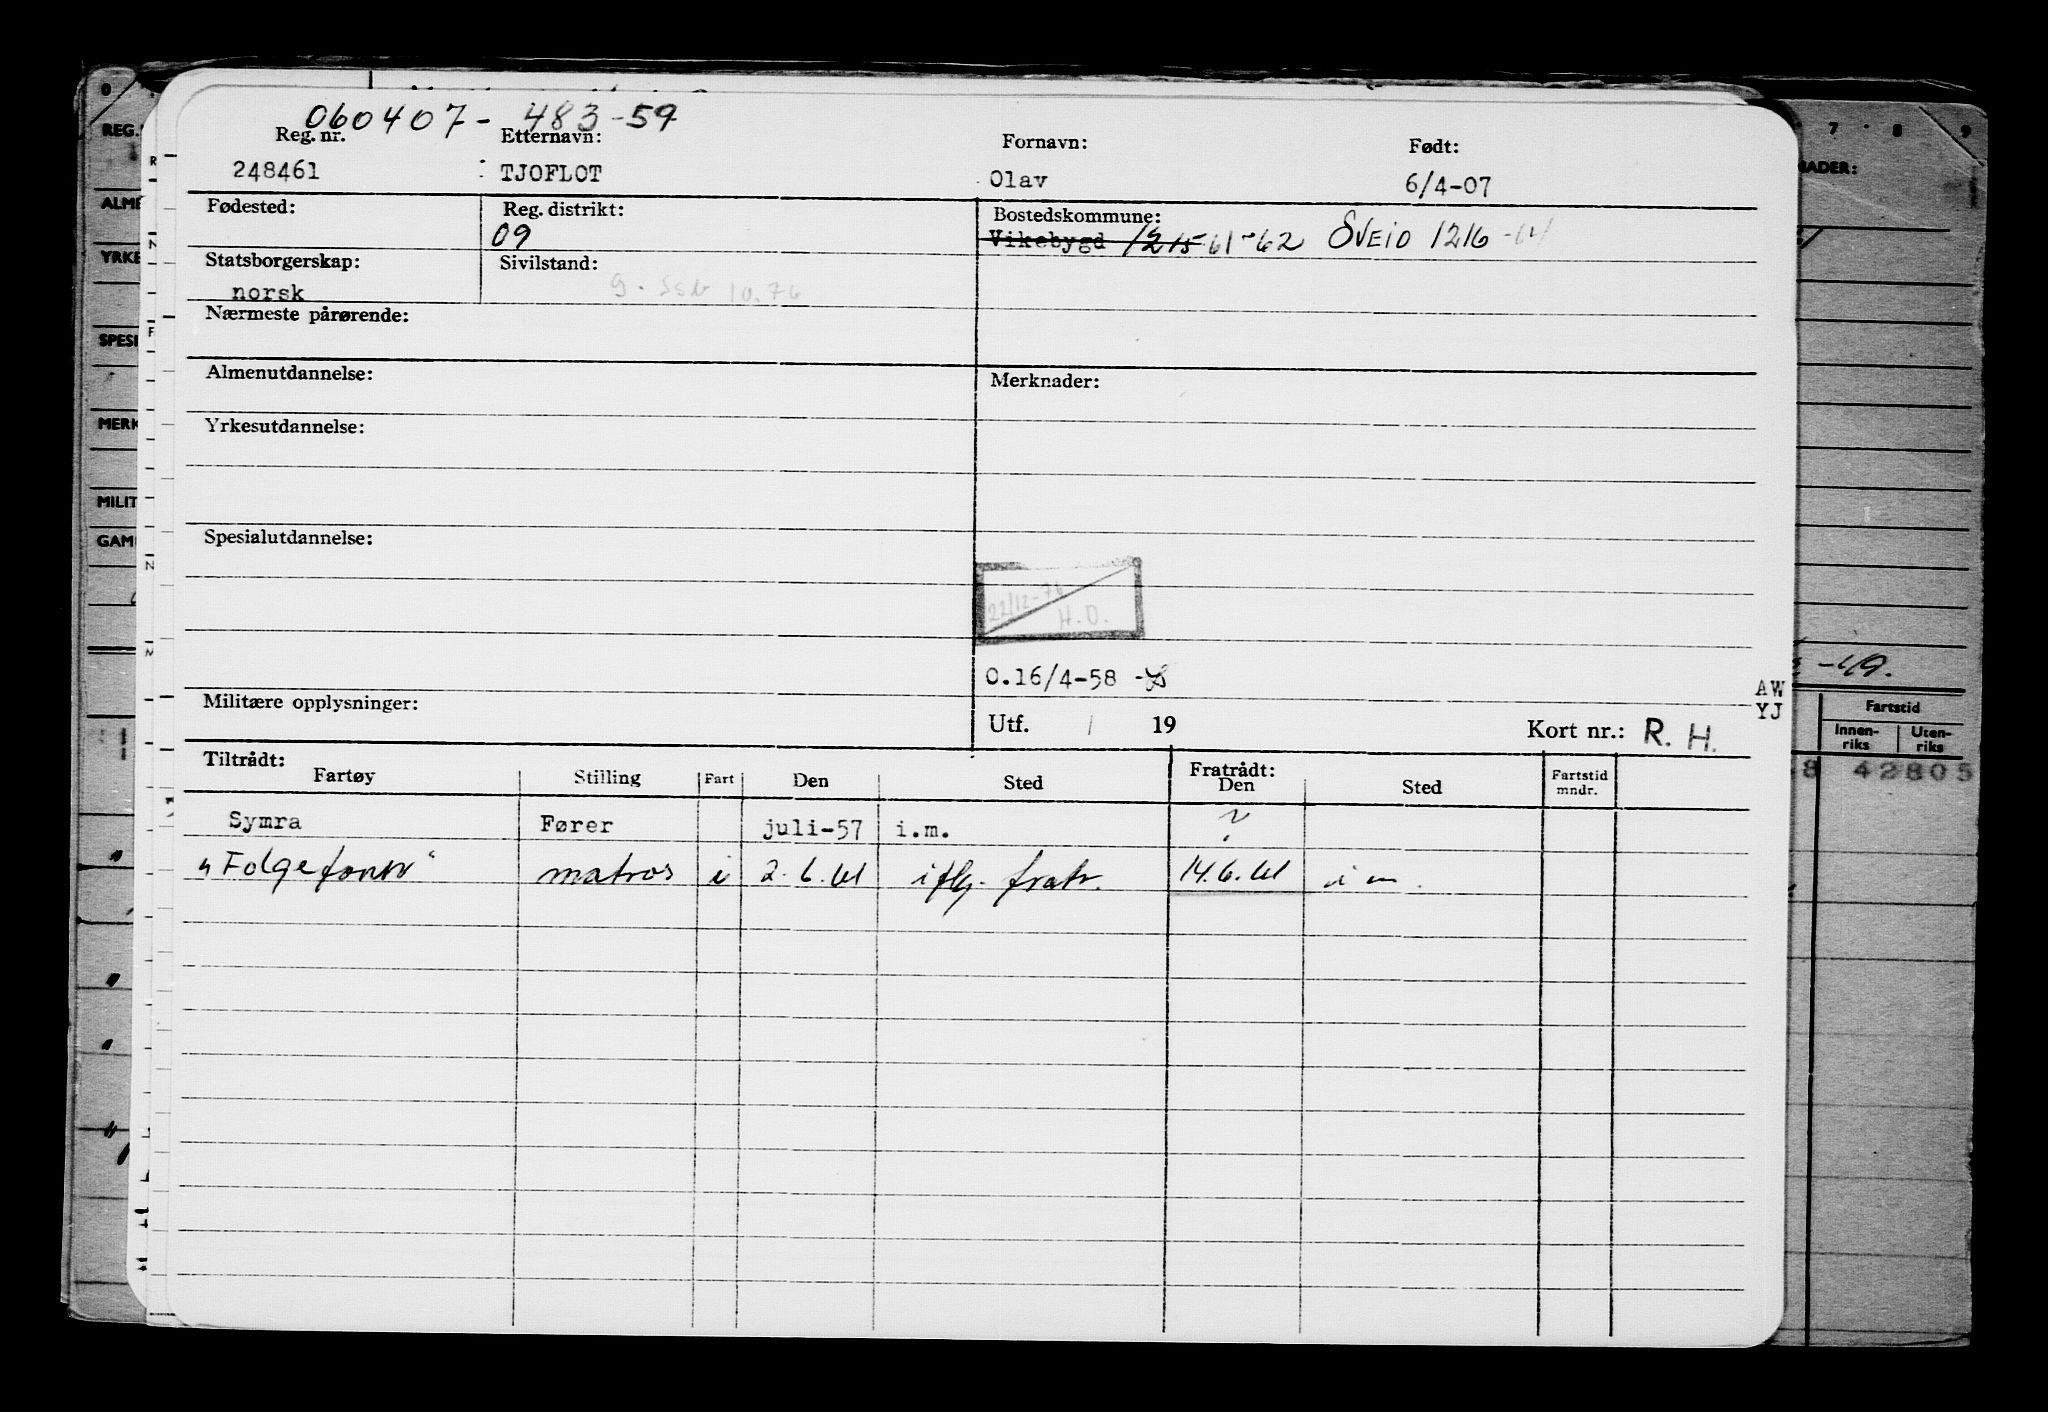 060407- 483-59
Reg. nr. Etternavn: Fornavn: Født:
248461 TJOFLOT Olav 6/4-07
Fødested: Reg. distrikt: Bostedskommune:
09 Vikebygd 1215 61-62 SVEIO 1216 -64
Statsborgerskap: Sivilstand:
norsk g. SSB 10.76
Nærmeste pårørende:
Almenutdannelse: Merknader:
Yrkesutdannelse:
Spesialutdannelse:
22/12-76
H.O.
O.16/4-58
AW
YJ
Militære opplysninger: Utf. / 19 Kort nr.: R. H.
Tiltrådt: Fratrådt:
Fartøy Stilling Fart Den Sted Den Sted Fartstid mndr.
Symra Fører juli-57 i.m. ?
"Folgefonn" matros i 2.6.61 iflg. fratr. 14.6.61 i m.
REG.
ALME
YRKE
SPESI
MERK
MILIT
GAM
7 8 9
NADER:
-49.
Fartstid
Innen-riks Uten-riks
8 42805